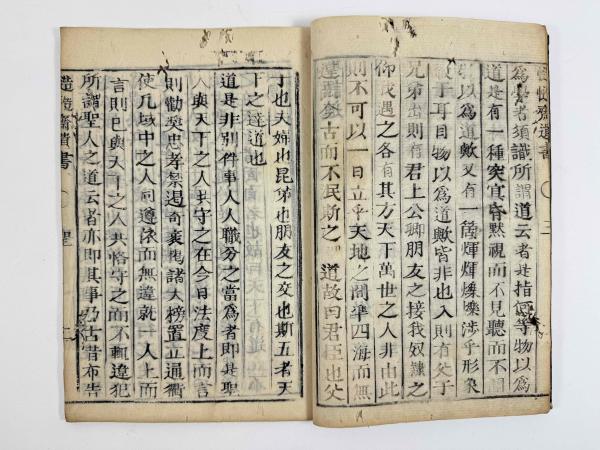 慥慥齋遺書 〇 三
為學者須識所謂道云者是指何等物以為
道是有一種突冥昏黙視而不見聽而不聞
以為道歟又有一段煇煇爍爍涉乎形象
于耳目物以為道歟皆非也入則有父子
兄弟出則有君上公卿朋友之接我奴隸之
仰我遇之各有其方天下萬世之人非由此
則不可以一日立乎天地之間準四海而無
古而不民斯之 道故曰君臣也父
子也夫婦也昆弟也朋友之交也斯五者天
下之達道也
道是非別件事人人職分之當為者即是聖
人與天下之人共守之在今日法度上而言
則勸奬忠孝禁遏奇衺揭諸大榜置立通衢
使凡域中之人同遵依而無違就一人上而
言則已與天下之人共恪守之而不輒違犯
所謂聖人之道云者亦即其事乃古昔布告
慥慥齋遺書 〇 聖 二